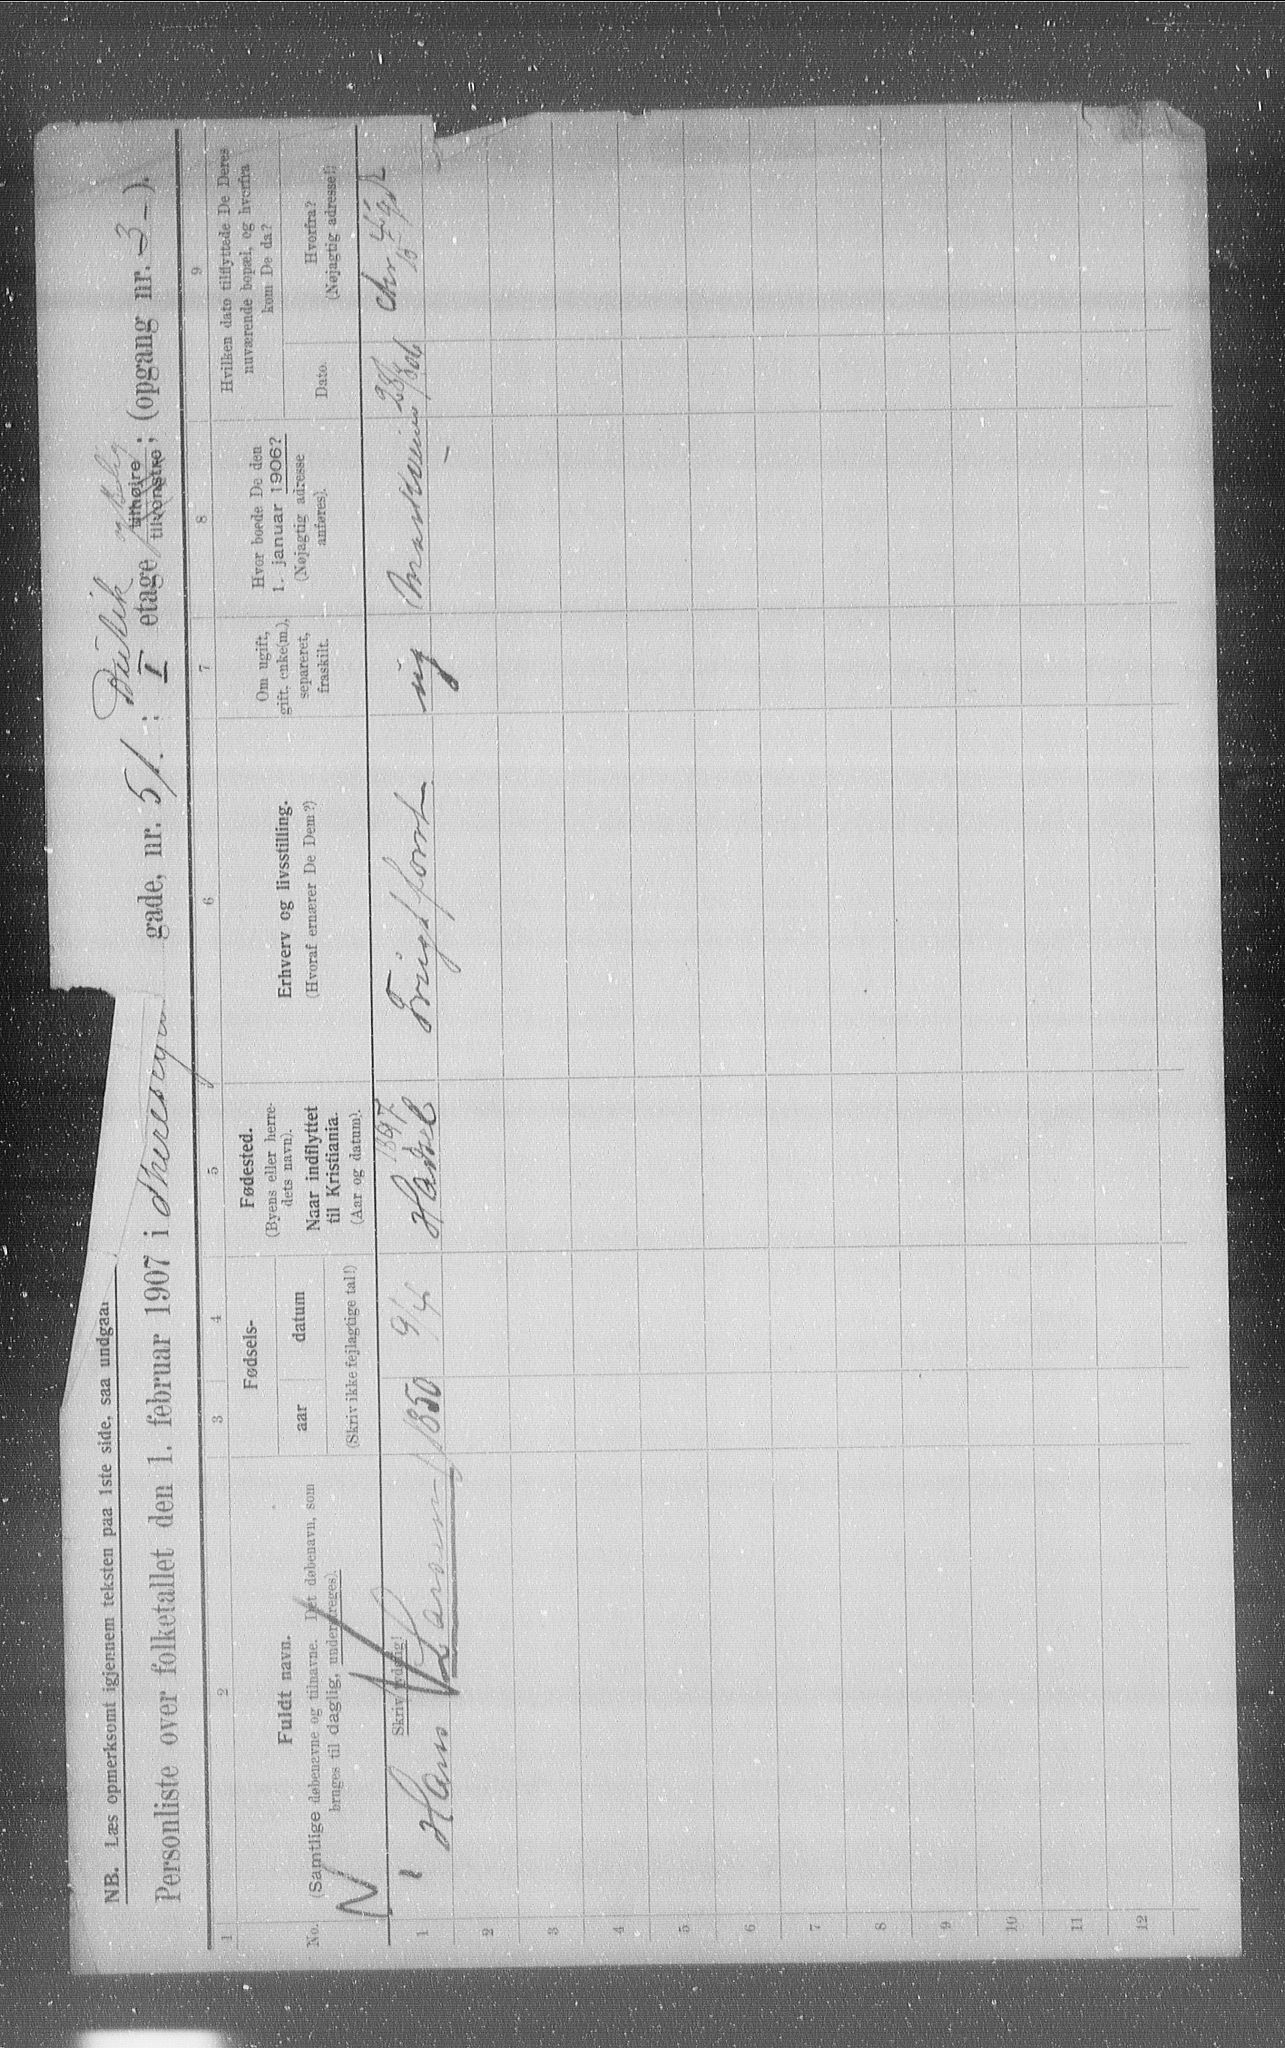 NB. Læs opmerksomt igjennem teksten paa 1ste side, saa undgaar
Personliste over folketallet den 1. februar 1907 i Theresegd gade, nr. 51. : I etage, tilhøire tilvenstre; (opgang nr. 3 – ).
Butik og Bolig
1 2 3 4 5 6 7 8 9
No.
Fuldt navn.
(Samtlige døbenavne og tilnavne. Det døbenavn, som
bruges til daglig, understreges).
Skriv tydelig!
Fødsels-
aar datum
(Skriv ikke fejlagtige tal!)
Fødested.
(Byens eller herre-
dets navn).
Naar indflyttet
til Kristiania.
(Aar og datum).
Erhverv og livsstilling.
(Hvoraf ernærer De Dem?)
Om ugift,
gift, enke(m.),
separeret,
fraskilt.
Hvor boede De den
1. januar 1906?
(Nøjagtig adresse
anføres).
Hvilken dato tilflyttede De Deres
nuværende bopæl, og hvorfra
kom De da?
Dato.
Hvorfra?
(Nøjagtig adresse!)
N
1 Hans Larsen 1850 9/4 1897 Hadsel ug 28/3 06 Chr 4
2
3
4
5
6
7
8
9
10
11
12